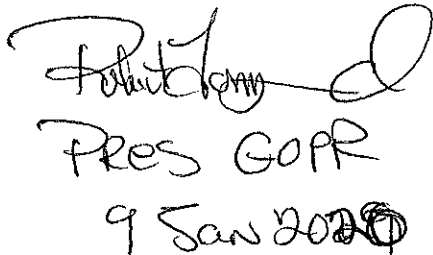 Robert
PRES GOPR
9 Jan 2020